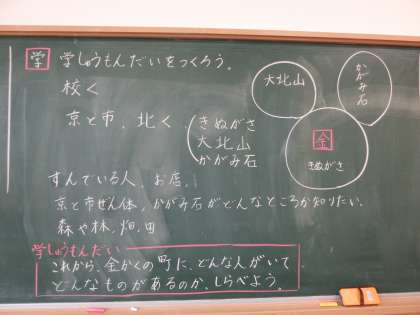 学 学しゅうもんだいをつくろう。
校く
京と市、北く、(きぬがさ
大北山
かがみ石)
すんでいる人、お店、
京と市ぜん体、かがみ石がどんなところか知りたい。
森や林、畑、田
学しゅうもんだい
これから、金かくの町に、どんな人がいて
どんなものがあるのか、しらべよう。
大北山
かがみ石
金
きぬがさ